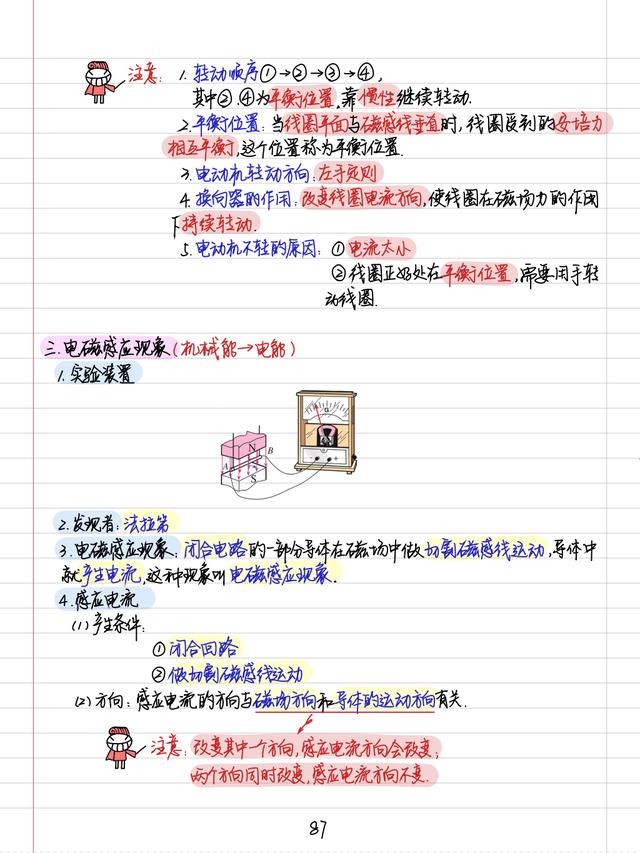 注意： 1. 转动顺序①→②→③→④,
其中②.④为平衡位置,靠惯性继续转动.
2.平衡位置：当线圈平面与磁感线垂直时,线圈受到的安培力
相互平衡,这个位置称为平衡位置.
3.电动机转动方向：左手定则
4.换向器的作用：改变线圈电流方向,使线圈在磁场力的作用
下持续转动.
5.电动机不转的原因：①电流太小
②线圈正好处在平衡位置,需要用手转
动线圈.
三.电磁感应现象(机械能→电能)
1.实验装置
G
N
A B
S
- +
2.发现者：法拉第
3.电磁感应现象：闭合电路的一部分导体在磁场中做切割磁感线运动,导体中
就产生电流,这种现象叫电磁感应现象.
4.感应电流
(1)产生条件：
①闭合回路
②做切割磁感线运动
(2)方向：感应电流的方向与磁场方向和导体的运动方向有关.
注意：改变其中一个方向,感应电流方向会改变;
两个方向同时改变,感应电流方向不变.
87